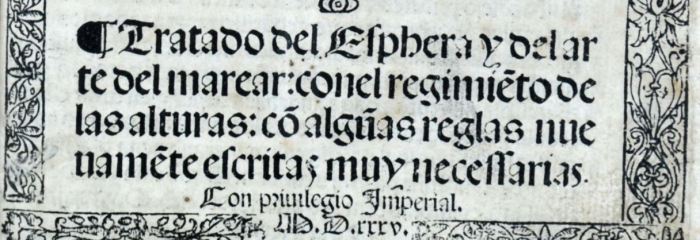 ¶ Tratado del Esphera y del ar
te del marear: con el regimiẽto de
las alturas: cõ algũas reglas nue
uamẽte escritas muy necessarias.
Con priuilegio Imperial.
M.D.xxxv.